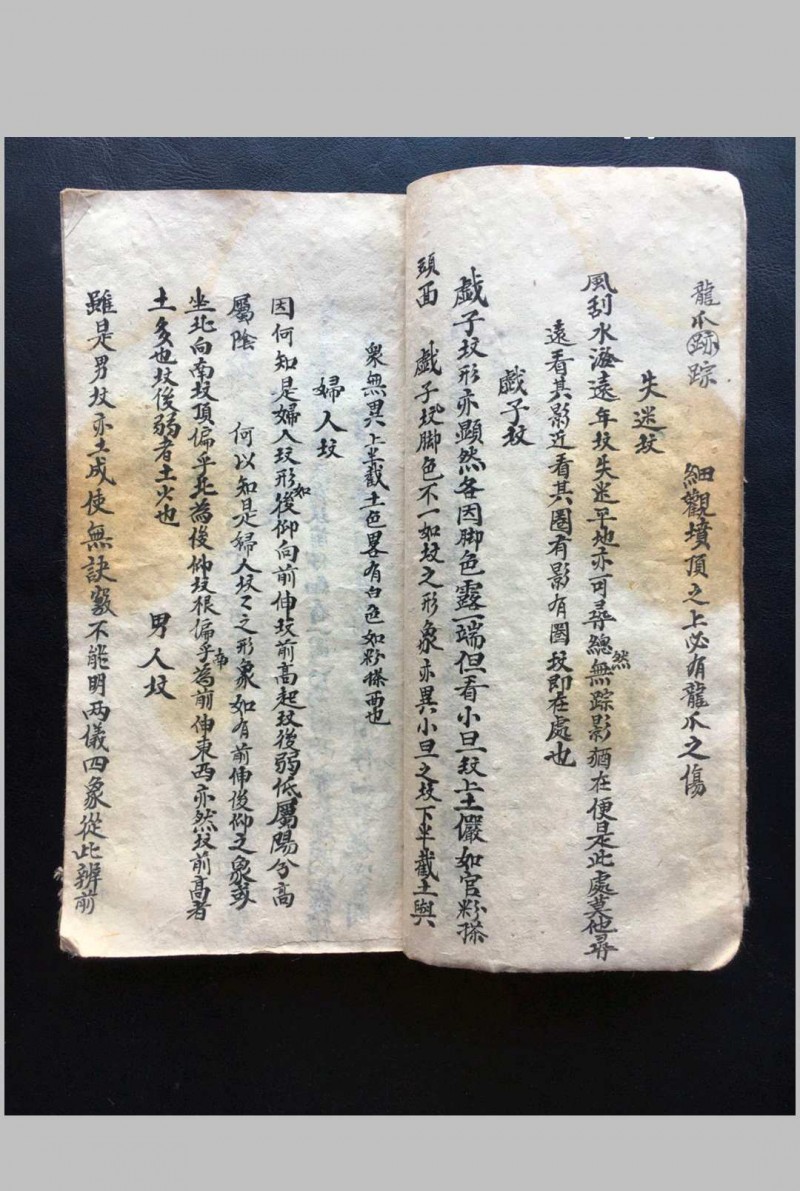 龍爪跡踪
細觀墳頂之上必有龍爪之傷
失迷坟
風刮水淹遠年坟失迷平地亦可尋總然無踪影猶在便是此處莫他尋
遠看其影近看其圈有影有圈坟即在處也
戯子坟
戯子坟形亦顕然各因脚色露一端但看小旦坟上土儼如官粉搽
頭面 戯子坟脚色不一如坟之形象亦異小旦之坟下半截土與
衆無異上半截土色畧有白色如粉搽面也
婦人坟
因何知是婦人坟形如後仰向前伸坟前高起坟後弱低屬陽分高
屬陰 何以知是婦人坟〻之形象如有前伸後仰之象
坐北向南坟頂偏乎北為後仰坟根偏乎南為前伸東西亦然坟前高者
土多也坟後弱者土少也
男人坟
雖是男坟亦土成使無訣竅不能明两儀四象從此辨前